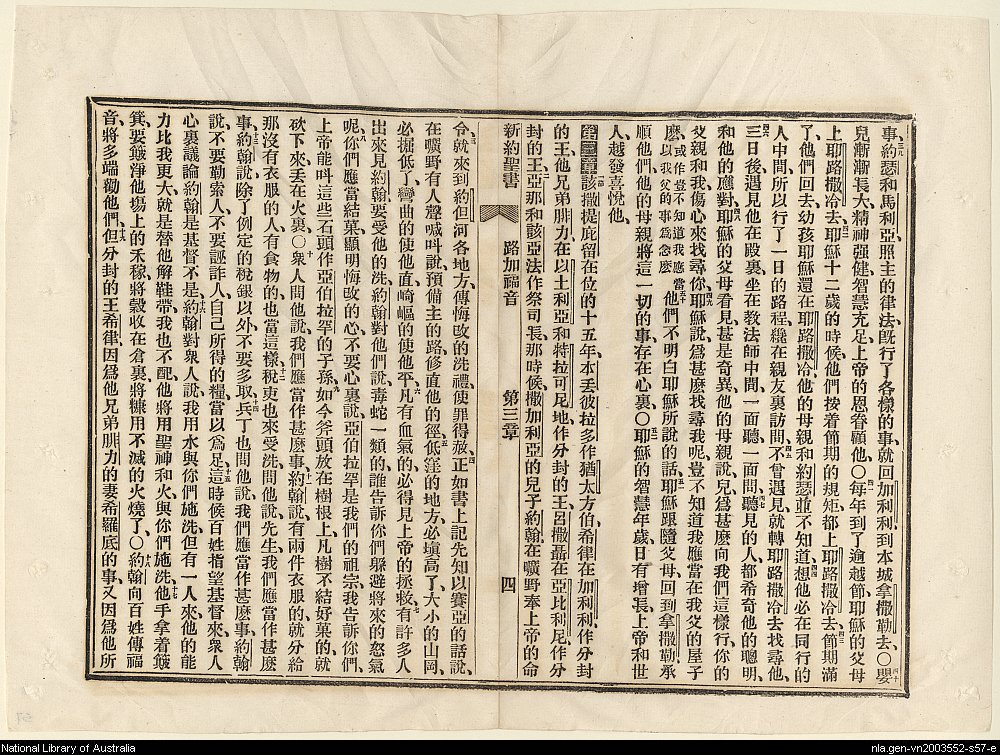 事、三九約瑟和馬利亞照主的律法旣行了各樣的事就回加利利到本城拿撒勒去、○四十嬰
兒漸漸長大精神强健智慧充足上帝的恩眷顧他、○四一每年到了逾越節耶穌的父母
上耶路撒冷去、四二耶穌十二歲的時候他們按着節期的規矩都上耶路撒冷去、四三節期滿
了、他們回去幼孩耶穌還在耶路撒冷他的母親和約瑟並不知道、四四想他必在同行的
人中間所以行了一日的路程纔在親友裏訪問、四五不曾遇見就轉耶路撒冷去找尋他、
四六三日後遇見他在殿裏、坐在教法師中間、一面聽、一面問、四七聽見的人都希奇他的聰明
和他的應對、四八耶穌的父母看見甚是奇異、他的母親說、兒爲甚麼向我們這樣行、你的
父親和我傷心來找尋你、四九耶穌說爲甚麼找尋我呢豈不知道我應當在我父的屋子
麽、或作豈不知道我應當以我父的事爲念麽五十他們不明白耶穌所說的話、五一耶穌跟隨父母、回到拿撒勒承
順他們、他的母親將這一切的事存在心裏、○五二耶穌的智慧年歲日有增長、上帝和世
人、越發喜悅他、
第三章該撒提庇留在位的十五年、本丟彼拉多作猶太方伯希律在加利利作分封
的王、他兄弟腓力在以土利亞和特拉可尼地作分封的王、呂撒聶在亞比利尼作分
封的王、二亞那和該亞法作祭司長、那時候撒加利亞的兒子約翰在曠野奉上帝的命
新約聖書 路加福音 第三章 四
令、三就來到約但河各地方、傳悔改的洗禮使罪得赦、四正如書上記先知以賽亞的話說、
在曠野有人聲喊呌說、預備主的路修直他的徑、五低窪的地方必塡高了、大小的山岡、
必掘低了、彎曲的使他直崎嶇的使他平、六凡有血氣的必得見上帝的拯救、七有許多人
出來見約翰要受他的洗、約翰對他們說毒蛇一類的誰告訴你們躱避將來的怒氣
呢、八你們應當結菓顯明悔改的心不要心裏說亞伯拉罕是我們的祖宗、我告訴你們、
上帝能呌這些石頭作亞伯拉罕的子孫、九如今斧頭放在樹根上、凡樹不結好菓的、就
砍下來丟在火裏、○十衆人問他說我們應當作甚麼事、十一約翰說有兩件衣服的就分給
那沒有衣服的人、有食物的也當這樣、十二稅吏也來受洗問他說先生我們應當作甚麼
事、十三約翰說除了例定的稅銀以外不要多取、十四兵丁也問他說我們應當作甚麼事約翰
說、不要勒索人、不要誣詐人自己所得的糧當以爲足、十五這時候百姓指望基督來、衆人
心裏議論約翰是基督不是、十六約翰對衆人說我用水與你們施洗、但有一人來、他的能
力比我更大、就是替他解鞋帶、我也不配、他將用聖神和火與你們施洗、十七他手拿着簸
箕、要簸淨他場上的禾稼、將穀收在倉裏、將糠用不滅的火燒了、○十八約翰向百姓傳福
音、將多端勸他們、十九但分封的王希律因爲他兄弟腓力的妻希羅底的事又因爲他所
National Library of Australia
nla.gen-vn2003552-s57-e